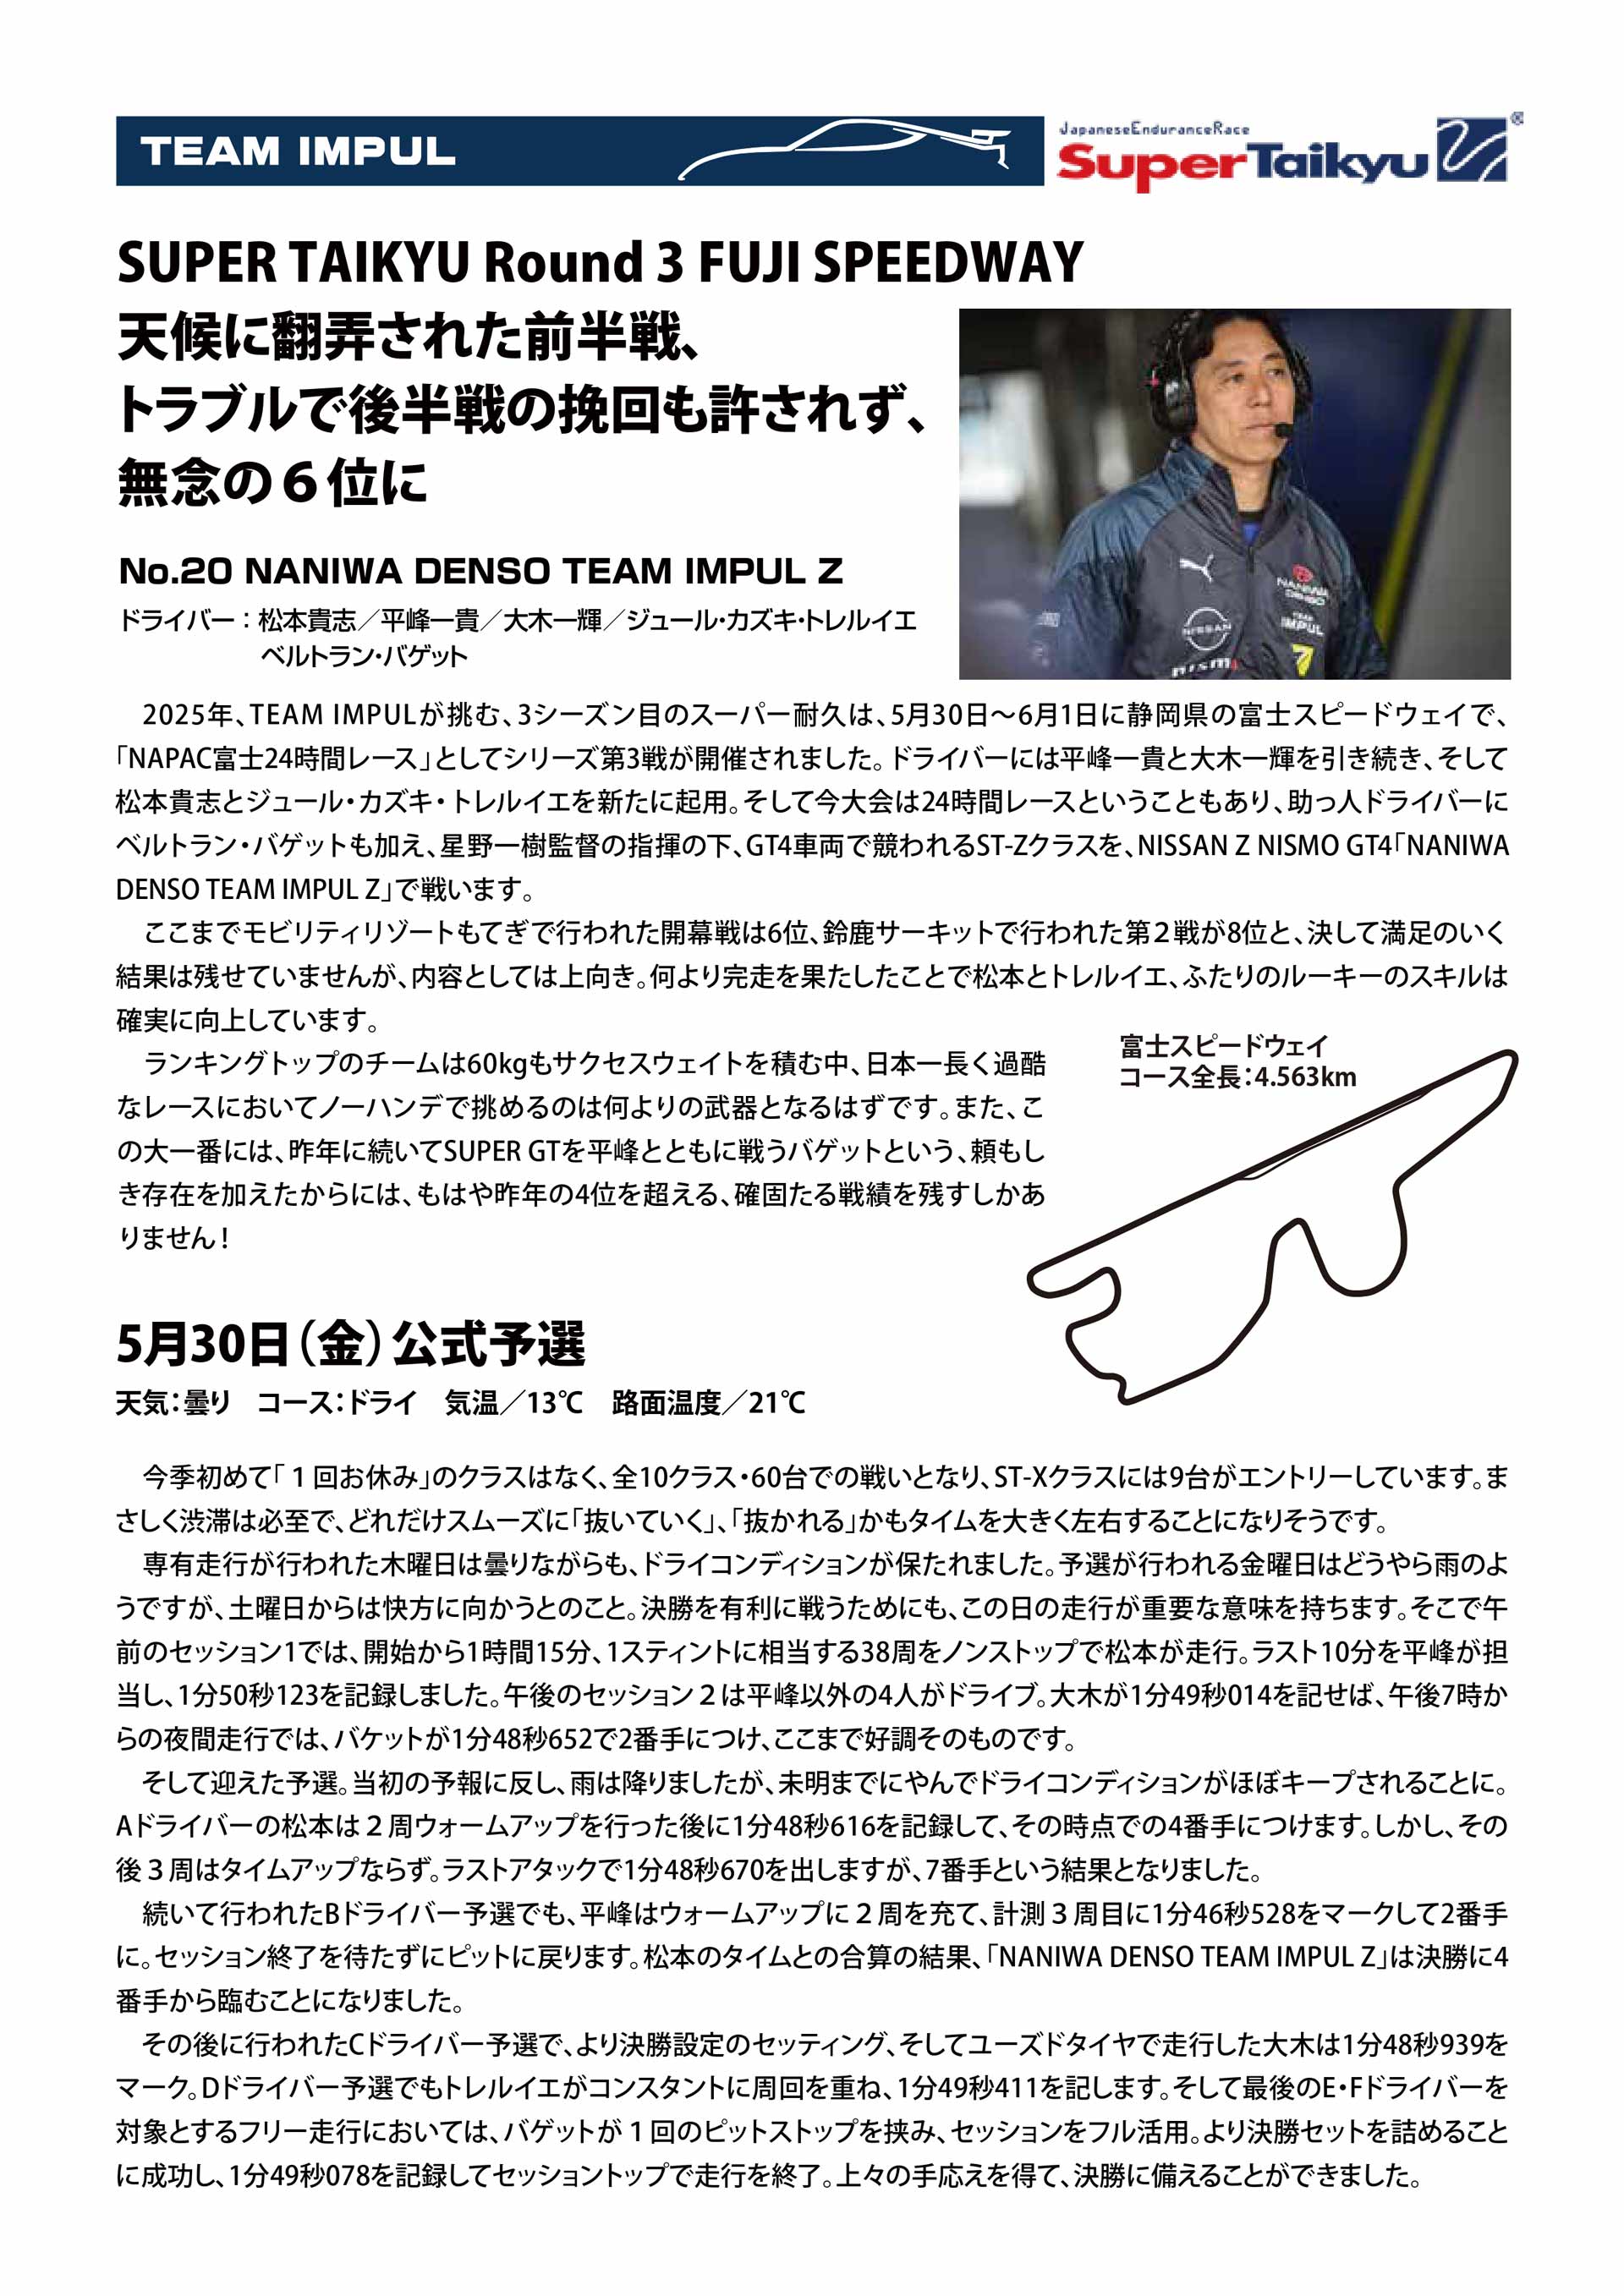 TEAM IMPUL
JapaneseEnduranceRace
SuperTaikyu
®
SUPER TAIKYU Round 3 FUJI SPEEDWAY
天候に翻弄された前半戦、
トラブルで後半戦の挽回も許されず、
無念の６位に
No.20 NANIWA DENSO TEAM IMPUL Z
ドライバー：松本貴志／平峰一貴／大木一輝／ジュール・カズキ・トレルイエ
ベルトラン・バゲット
NANIWA
DENSO
NISSAN
TEAM
IMPUL
nismo
7
　2025年、TEAM IMPULが挑む、3シーズン目のスーパー耐久は、5月30日～6月1日に静岡県の富士スピードウェイで、
「NAPAC富士24時間レース」としてシリーズ第3戦が開催されました。ドライバーには平峰一貴と大木一輝を引き続き、そして
松本貴志とジュール・カズキ・トレルイエを新たに起用。そして今大会は24時間レースということもあり、助っ人ドライバーに
ベルトラン・バゲットも加え、星野一樹監督の指揮の下、GT4車両で競われるST-Zクラスを、NISSAN Z NISMO GT4「NANIWA
DENSO TEAM IMPUL Z」で戦います。
　ここまでモビリティリゾートもてぎで行われた開幕戦は6位、鈴鹿サーキットで行われた第２戦が8位と、決して満足のいく
結果は残せていませんが、内容としては上向き。何より完走を果たしたことで松本とトレルイエ、ふたりのルーキーのスキルは
確実に向上しています。
　ランキングトップのチームは60kgもサクセスウェイトを積む中、日本一長く過酷
なレースにおいてノーハンデで挑めるのは何よりの武器となるはずです。また、こ
の大一番には、昨年に続いてSUPER GTを平峰とともに戦うバゲットという、頼もし
き存在を加えたからには、もはや昨年の4位を超える、確固たる戦績を残すしかあ
りません！
富士スピードウェイ
コース全長：4.563km
5月30日（金）公式予選
天気：曇り　コース：ドライ　気温／13℃　路面温度／21℃
　今季初めて「１回お休み」のクラスはなく、全10クラス・60台での戦いとなり、ST-Xクラスには9台がエントリーしています。ま
さしく渋滞は必至で、どれだけスムーズに「抜いていく」、「抜かれる」かもタイムを大きく左右することになりそうです。
　専有走行が行われた木曜日は曇りながらも、ドライコンディションが保たれました。予選が行われる金曜日はどうやら雨のよ
うですが、土曜日からは快方に向かうとのこと。決勝を有利に戦うためにも、この日の走行が重要な意味を持ちます。そこで午
前のセッション1では、開始から1時間15分、1スティントに相当する38周をノンストップで松本が走行。ラスト10分を平峰が担
当し、1分50秒123を記録しました。午後のセッション２は平峰以外の4人がドライブ。大木が1分49秒014を記せば、午後7時か
らの夜間走行では、バケットが1分48秒652で2番手につけ、ここまで好調そのものです。
　そして迎えた予選。当初の予報に反し、雨は降りましたが、未明までにやんでドライコンディションがほぼキープされることに。
Aドライバーの松本は２周ウォームアップを行った後に1分48秒616を記録して、その時点での4番手につけます。しかし、その
後３周はタイムアップならず。ラストアタックで1分48秒670を出しますが、7番手という結果となりました。
　続いて行われたBドライバー予選でも、平峰はウォームアップに２周を充て、計測３周目に1分46秒528をマークして2番手
に。セッション終了を待たずにピットに戻ります。松本のタイムとの合算の結果、「NANIWA DENSO TEAM IMPUL Z」は決勝に4
番手から臨むことになりました。
　その後に行われたCドライバー予選で、より決勝設定のセッティング、そしてユーズドタイヤで走行した大木は1分48秒939を
マーク。Dドライバー予選でもトレルイエがコンスタントに周回を重ね、1分49秒411を記します。そして最後のE・Fドライバーを
対象とするフリー走行においては、バゲットが１回のピットストップを挟み、セッションをフル活用。より決勝セットを詰めること
に成功し、1分49秒078を記録してセッショントップで走行を終了。上々の手応えを得て、決勝に備えることができました。